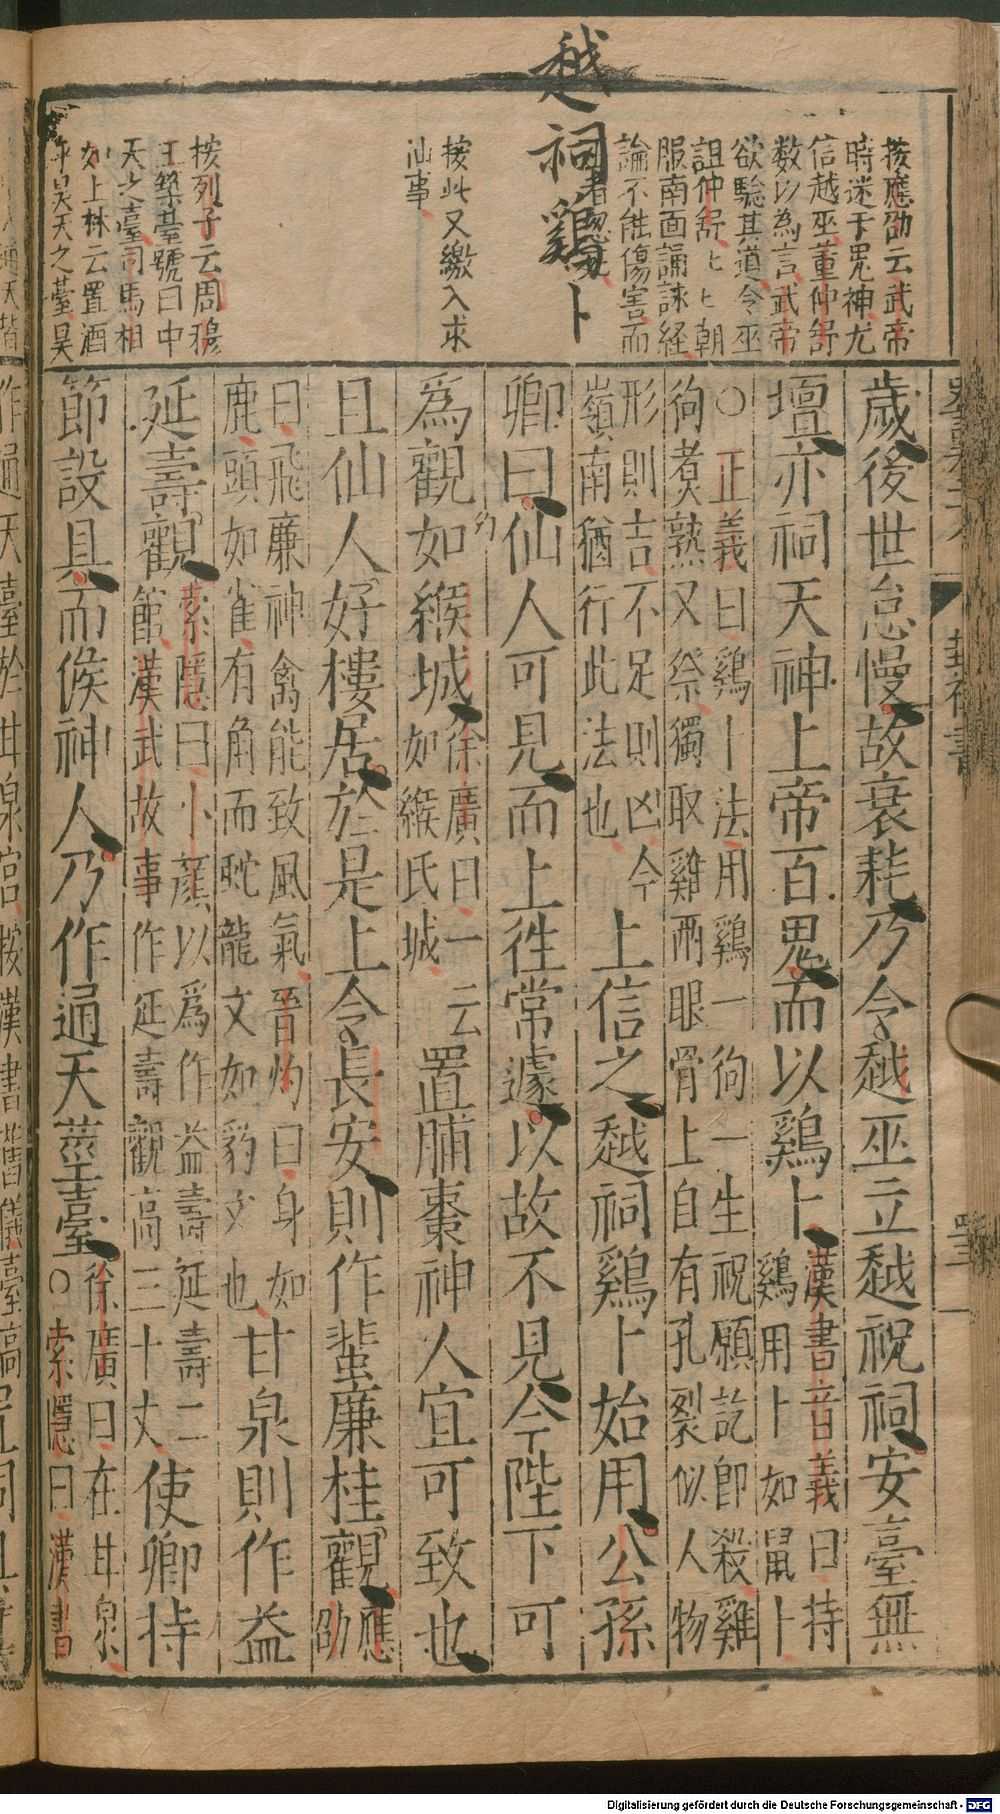 越祠鷄卜
按應劭云武帝
時迷于鬼神尤
信越巫董仲舒
數以為言武帝
欲驗其道令巫
詛仲舒仲舒朝
服南面誦咏経
論不能傷害而
按此又繳入求
仙事
按列子云周穆
王築臺號曰中
天之臺司馬相
如上林云置酒
乎昊天之臺昊
歲後世怠慢故衰耗乃令越巫立越祝祠安臺無
壇亦祠天神上帝百鬼而以鷄卜
漢書音義曰持
鷄用卜如鼠卜
○正義曰鷄卜法用鷄一狗一生祝願訖即殺雞
狗煮熟又祭獨取雞兩眼骨上自有孔裂似人物
形則吉不足則凶今
嶺南猶行此法也
上信之越祠鷄卜始用公孫
卿曰仙人可見而上徃常遽以故不見今陛下可
為觀如緱城
徐廣曰一云
如緱氏城
置脯棗神人宜可致也
且仙人好樓居於是上令長安則作蜚廉桂觀
應
劭
曰飛廉神禽能致風氣晉灼曰身如
鹿頭如雀有角而蛇龍文如豹文也
甘泉則作益
延壽觀
索隱曰小顏以爲作益壽延壽二
館漢武故事作延壽觀高三十丈
使卿持
節設具而候神人乃作通天莖臺
徐廣曰在甘泉
○索隱曰漢書
作通天臺於甘泉宮按漢書舊儀臺高
封禪書